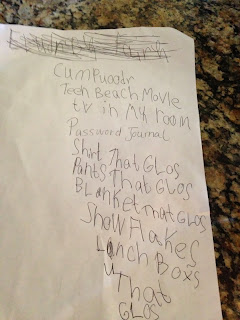 Cumpuoodr
Teen Beach Movie
tv in My room
Password Journal
Shirt That GLOS
Pants That GLOS
BLanket that GLOS
Snow FLakes
Lunch Boxs
That
GLOS